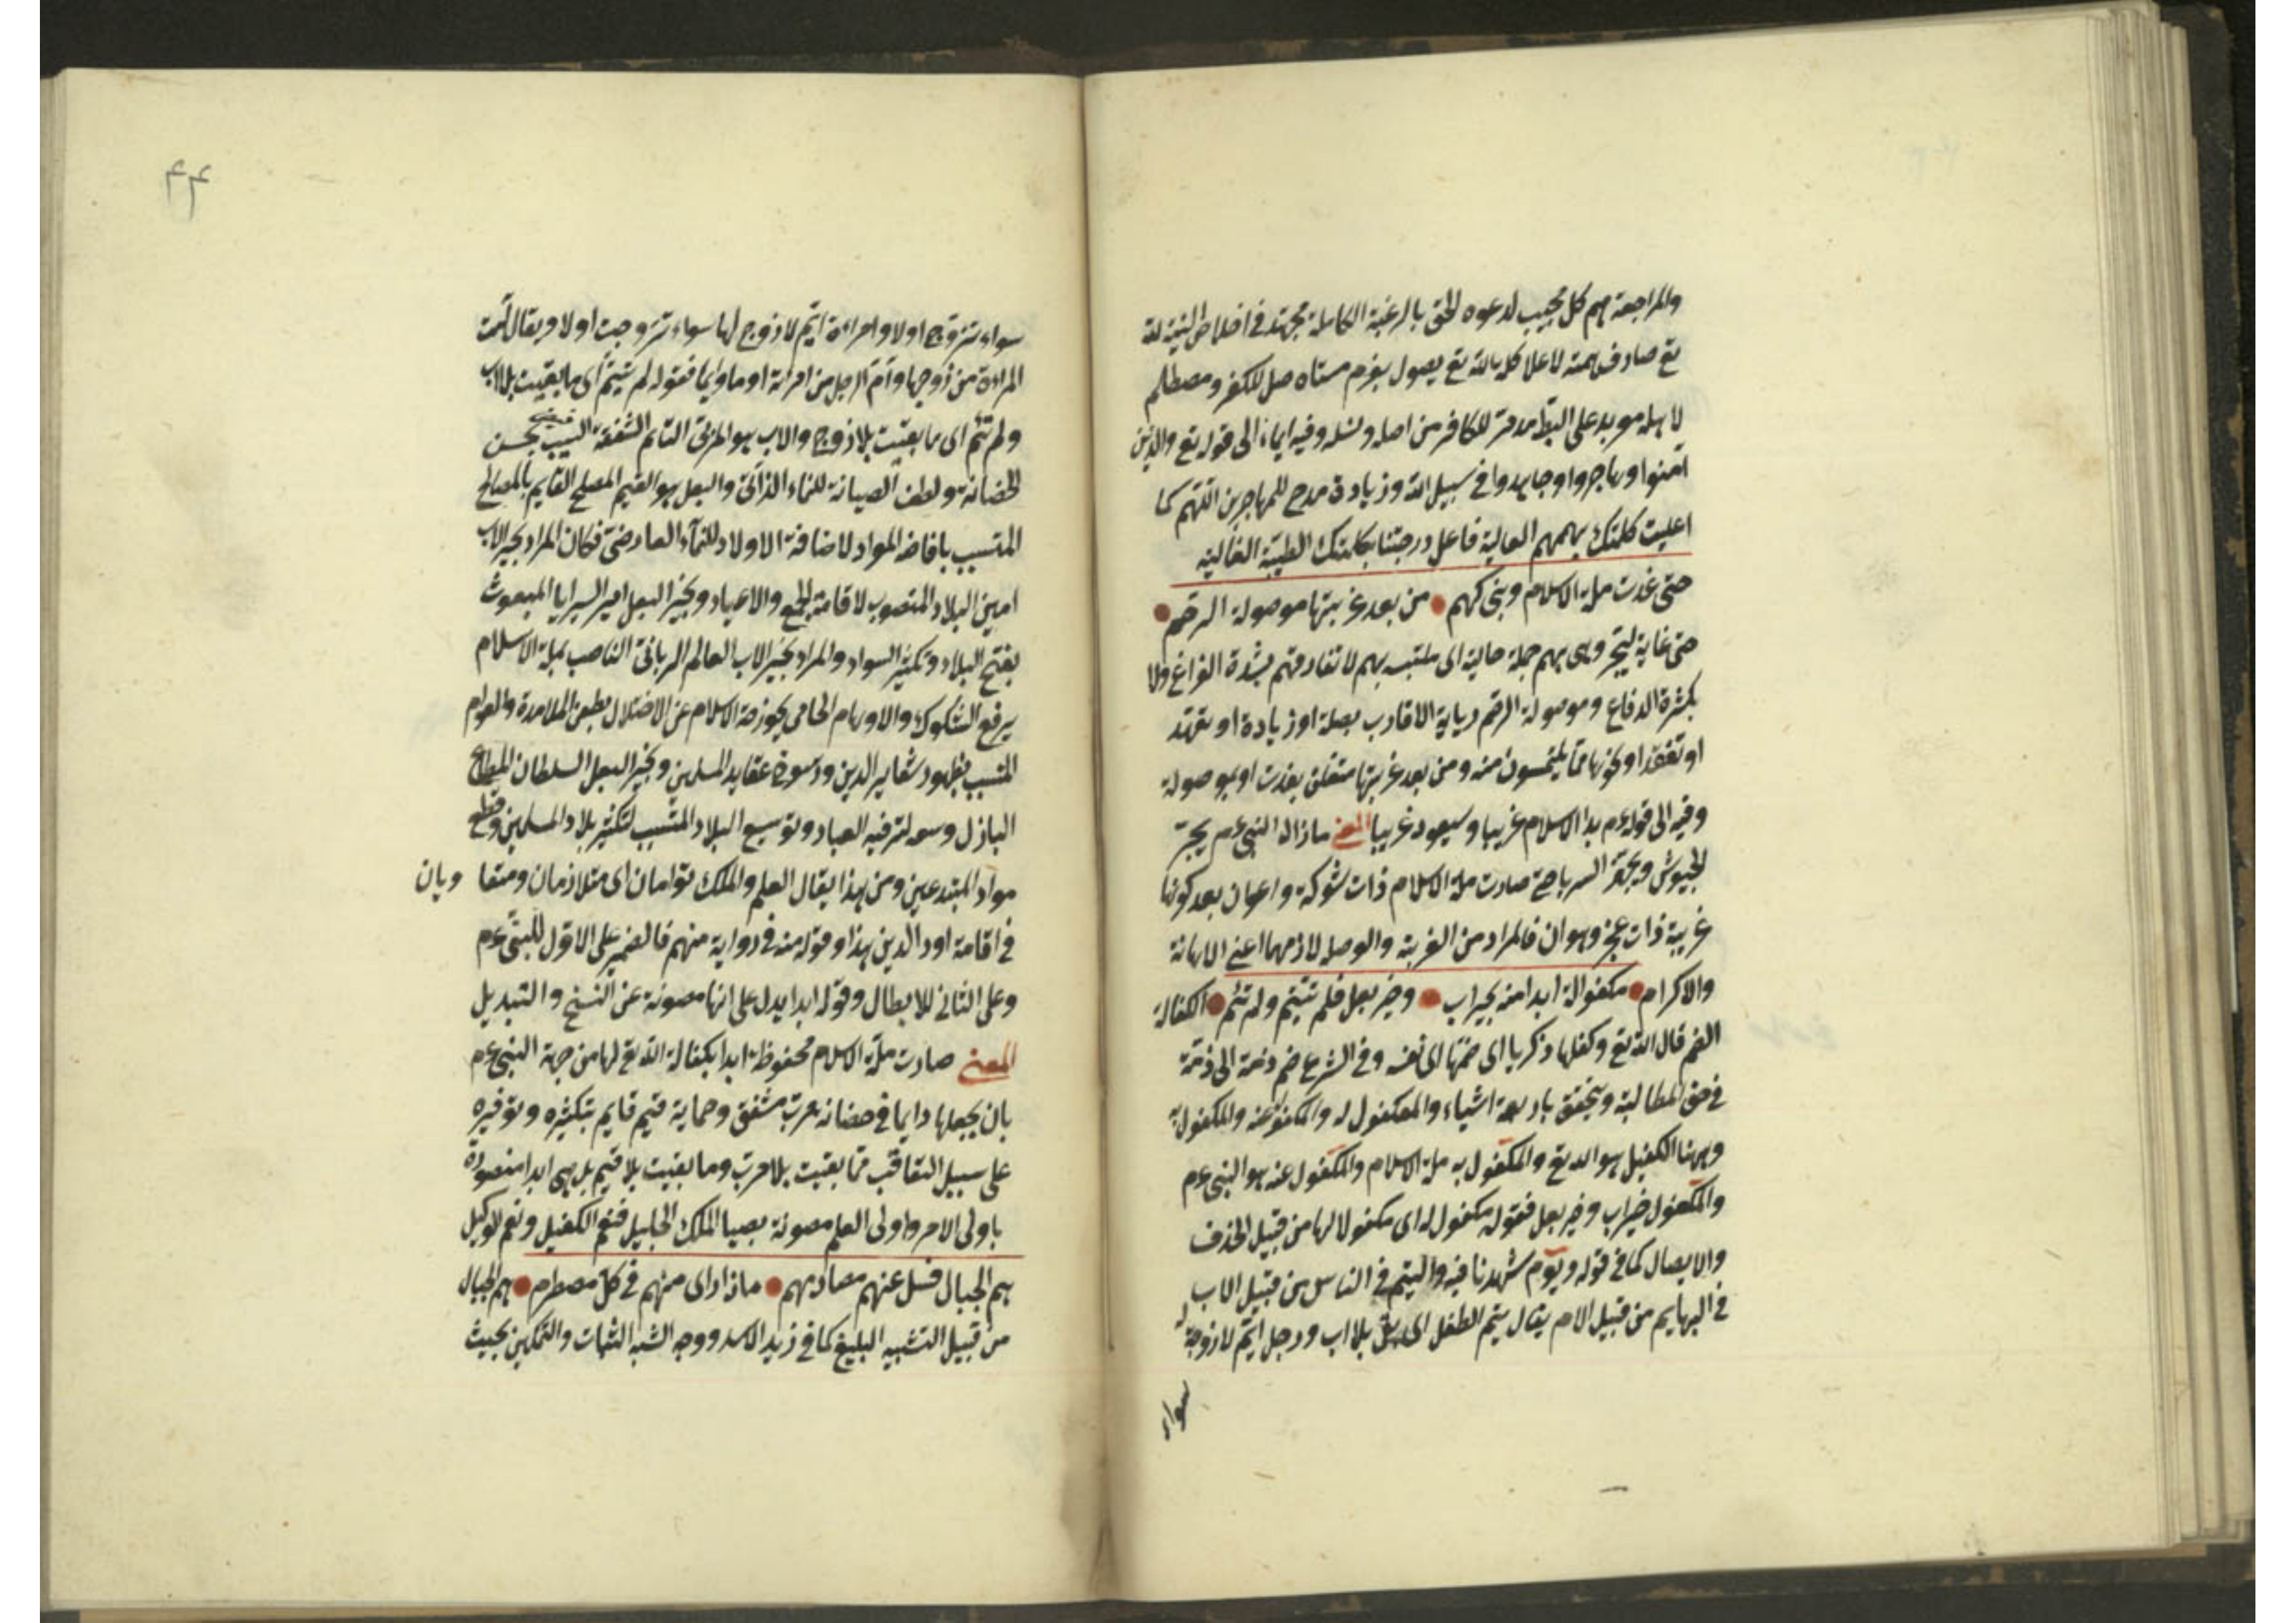 والمراجعة هم كل مجيب لدعوه الحق بالرغبة الكاملة مجتهد في اخلاص النية لله
تع صادف همته لاعلا كلمة الله تع يصول بعزم مستاصل للكفر ومصطلم
لاهله موبد على البتا مدمر للكافر من اصله ونسله وفيه ايماء الى قوله تع والذين
آمنوا وهاجروا وجاهدوا في سبيل الله وزيادة مدح للمهاجرين اللهم كما
اعليت كلمتك بهممهم العالية فاعل درجتنا بكلمتك الطيبة الغالية
حتى غدت ملة الاسلام وهي بهم من بعد غربتها موصولة الرحم
حتى غاية ليجر وهي بهم جملة حالية اى ملتبسه بهم لا تفارقهم بشدة الفراغ ولا
بكثرة الدفاع وموصولة الرحم رعاية الاقارب بصلة او زيادة او تعهد
او تفقد او نحوها مما يلتمسون منه ومن بعد غربتها متعلق بغدت او بموصولة
وفيه الى قوله عم بدا الاسلام غريبا وسيعود غريبا المعنى مازال النبي عم يجر
الجيوش ويجهز السرايا حتى صارت ملة الاسلام ذات شوكة واعوان بعد كونها
غريبة ذات عجز وهوان فالمراد من الغربة والوصل لازمهما اعنى الاهانة
والاكرام مكفولة ابدا منهم بخير اب وخير بعل فلم تيتم ولم تئم الكفالة
الضم قال الله تع وكفلها زكريا اى ضمها الى نفسه وفي الشرع ضم ذمة الى ذمة
في حق المطالبة ويتحقق باربعة اشياء والمكفول له والمكفول عنه والمكفول به
وههنا الكفيل هو الله تع والمكفول به ملة الاسلام والمكفول عنه هو النبي عم
والمكفول خير اب وخير بعل فقوله مكفولة اى مكفولا لها من قبيل الحذف
والايصال كما في قوله ويوم شهدنا فيه واليتم في الناس من قبيل الاب
في البهايم من قبيل الام يقال يتم الطفل اى بقى بلا اب ورجل ايم لا زوجة له
سواء
٤٤
سواء تزوج اولا وامراءة ايم لا زوج لها سواء تزوجت اولا ويقال آمت
المراءة من زوجها وآم الرجل من امرأته اوما وايما فقوله لم تيتم اى ما بقيت بلا اب
ولم تئم اى ما بقيت بلا زوج والاب هو المربى التام الشفقة السبب بحسن
الحضانة ولطف الصيانة للنماء الذاتى والبعل هو القيم المصلح القايم بالمصالح
المتسبب بافاضة المواد لاضافة الاولاد للنمآء العارضى فكان المراد بخير الاب
امين البلاد المنصوب لاقامة الجمع والاعياد وبخير البعل امير السرايا المبعوث
بفتح البلاد وتكثير السواد والمراد بخير الاب العالم الربانى الناصب بملة الاسلام
يرفع الشكوك والاوهام الحامى بحوزة الاسلام عن الاختلال بطعن الملاحدة والعوام
المتسبب بظهور شعاير الدين ورسوخ عقايد المسلمين وبخير البعل السلطان المطاع
الباذل وسعه لترفيه العباد وتوسيع البلاد المتسبب لتكثير بلاد المسلمين وقطع
مواد المبتدعين ومن هذا يقال العلم والملك توامان اى متلازمان ومتقا وبان
في اقامة اود الدين هذا وقوله منه في رواية منهم فالضمير على الاول للنبي عم
وعلى الثانى للابطال وقوله ابدا يدل على انها مصونة عن النسخ والتبديل
المعنى صارت ملة الاسلام محفوظة ابدا بكفالة الله تع لها من جهة النبي عم
بان يجعلها دايما في حضانة مرب مشفق وحماية قيم قايم بتكثيره وتوفيره
على سبيل التعاقب فما بقيت بلا مرب وما بقيت بلا قيم بل هي ابدا منصورة
باولى الامر واولى العلم مصونة بصيا الملك الجليل فنعم الكفيل ونعم الوكيل
هم الجبال فسل عنهم مصادمهم ماذا راى منهم في كل مصطدم هم الجبال
من قبيل التشبيه البليغ كما في زيد الاسد ووجه الشبه الثبات والتمكين بحيث